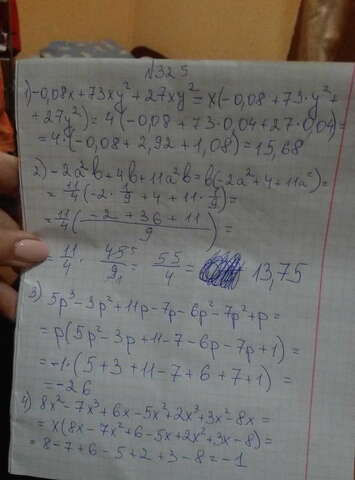 №325
1) -0,08x+73xy²+27xy²=x(-0,08+73·y²+
+27y²)=4(-0,08+73·0,04+27·0,04)=
=4·(-0,08+2,92+1,08)=15,68
2) -2a²b+4b+11a²b=b(-2a²+4+11a²)=
=11/4(-2·1/9+4+11·1/9)=
=11/4((-2+36+11)/9)=
=11/4·45⁵/9₁=55/4= 13,75
3) 5p³-3p²+11p-7p-6p²-7p²+p=
=p(5p²-3p+11-7-6p-7p+1)=
=-1·(5+3+11-7+6+7+1)=
=-26
4) 8x²-7x³+6x-5x²+2x³+3x²-8x=
=x(8x-7x²+6-5x+2x²+3x-8)=
=8-7+6-5+2+3-8=-1